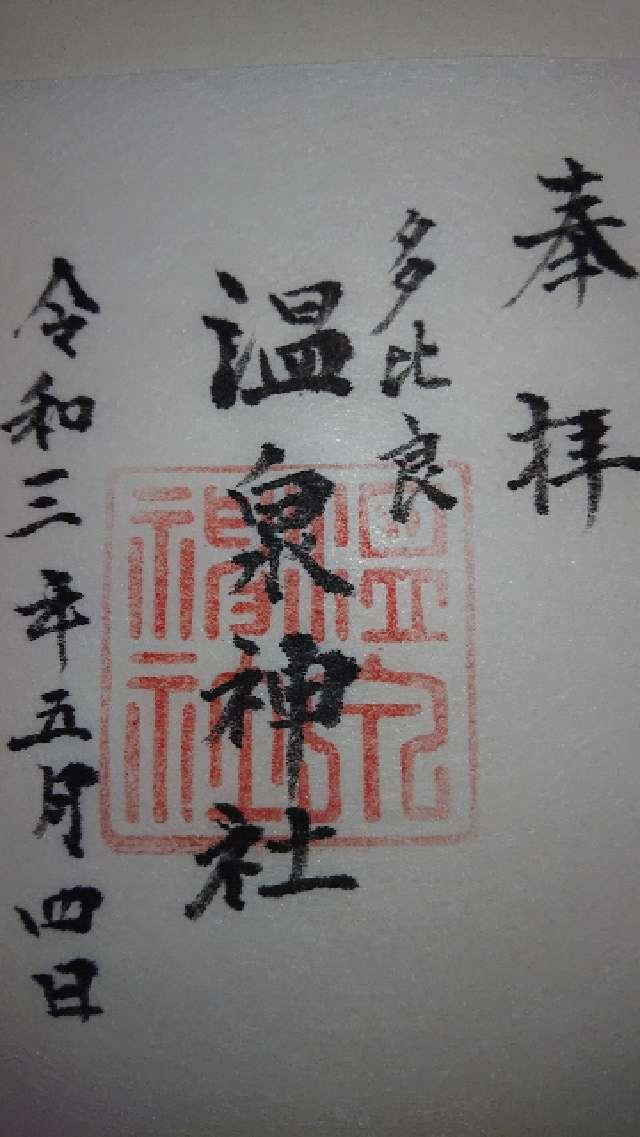 奉拝
多比良
温泉神社
令和三年五月四日